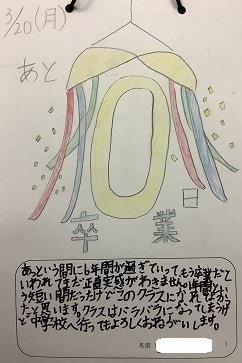 3/20(月)
あと
0
日
卒業
あっという間にも年間が過ぎていってもう卒業だと
いわれてまだ正直実感がわきません。1年間とい
う短い間だったけどこのクラスになれてよかっ
たと思います。クラスはバラバラになってしまうけ
ど中学校へ行ってもよろしくおねがいします。
名前